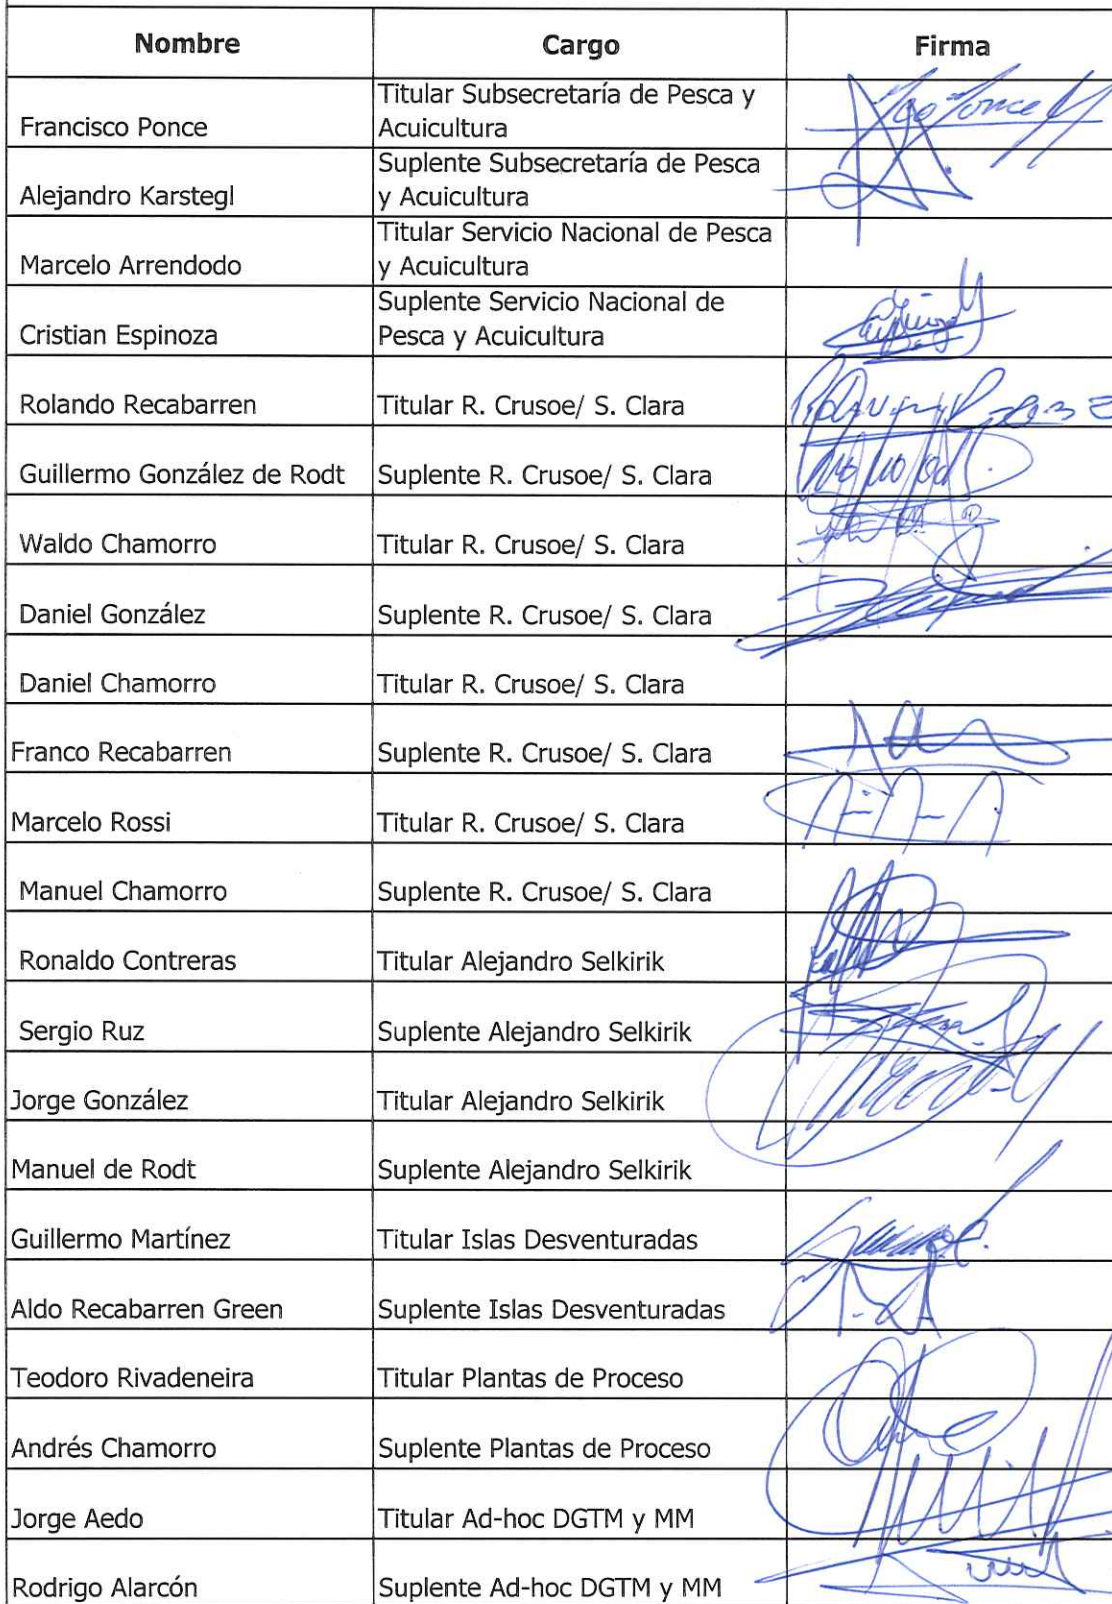 Nombre Cargo Firma
Titular Subsecretaría de Pesca y
Francisco Ponce Acuicultura
Suplente Subsecretaría de Pesca
Alejandro Karstegl y Acuicultura
Titular Servicio Nacional de Pesca
Marcelo Arrendodo y Acuicultura
Suplente Servicio Nacional de
Cristian Espinoza Pesca y Acuicultura
Rolando Recabarren Titular R. Crusoe/ S. Clara
Guillermo González de Rodt Suplente R. Crusoe/ S. Clara
Waldo Chamorro Titular R. Crusoe/ S. Clara
Daniel González Suplente R. Crusoe/ S. Clara
Daniel Chamorro Titular R. Crusoe/ S. Clara
Franco Recabarren Suplente R. Crusoe/ S. Clara
Marcelo Rossi Titular R. Crusoe/ S. Clara
Manuel Chamorro Suplente R. Crusoe/ S. Clara
Ronaldo Contreras Titular Alejandro Selkirik
Sergio Ruz Suplente Alejandro Selkirik
Jorge González Titular Alejandro Selkirik
Manuel de Rodt Suplente Alejandro Selkirik
Guillermo Martínez Titular Islas Desventuradas
Aldo Recabarren Green Suplente Islas Desventuradas
Teodoro Rivadeneira Titular Plantas de Proceso
Andrés Chamorro Suplente Plantas de Proceso
Jorge Aedo Titular Ad-hoc DGTM y MM
Rodrigo Alarcón Suplente Ad-hoc DGTM y MM